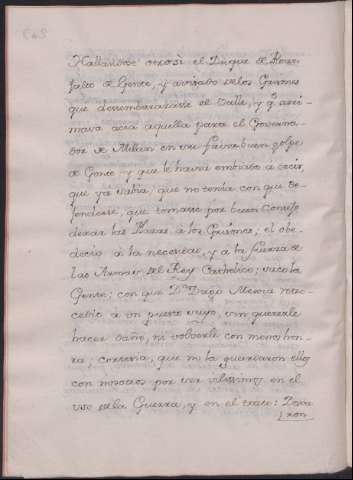 Hallandose otrosi el Duque de Roan
falto de Gente, y avisado de los Grisones
que desembarazasse el Valle, y q.e arri-
mava acia aquella parte el Governa-
dor de Milan con un fuerte buen golpe
de Gente y que le havia embiado à decir,
que yà sabia, que no tenia con que de-
fenderse, que tomasse por buen Consejo
dexar las Plazas a los Grisones; el obe-
decio a la necesidad, y a la fuerza de
las Armas del Rey Catholico; saco la
Gente; con que D.n Diego Mexia rece-
cebio à un puesto suyo, sin quererle
hacer daño, ni volverle con menos hon-
ra; cortesia, que ni la guardaron ellos
con nosotros por ser vilissimos en el
uso de la Guerra, y en el trato: Dexa
ron